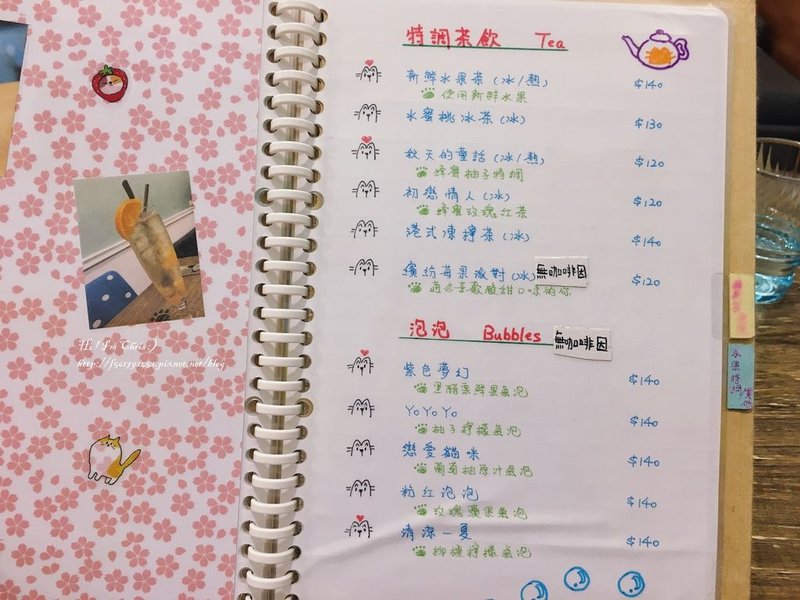 特調茶飲 Tea
新鮮水果茶(冰/熱) $140
使用新鮮水果
水蜜桃冰茶(冰) $130
秋天的童話(冰/熱) $120
蜂蜜柚子特調
初戀情人(冰) $120
蜂蜜玫瑰紅茶
港式凍檸茶(冰) $140
繽紛莓果派對(冰) 無咖啡因 $120
適合喜歡酸甜口味的你
泡泡 Bubbles 無咖啡因
紫色夢幻 $140
黑醋栗蘋果氣泡
YoYoYo $140
柚子檸檬氣泡
戀愛貓咪 $140
葡萄柚原汁氣泡
粉紅泡泡 $140
玫瑰蘋果氣泡
清涼一夏 $140
柳橙檸檬氣泡
Hi! I'm Chris:)
水果特調